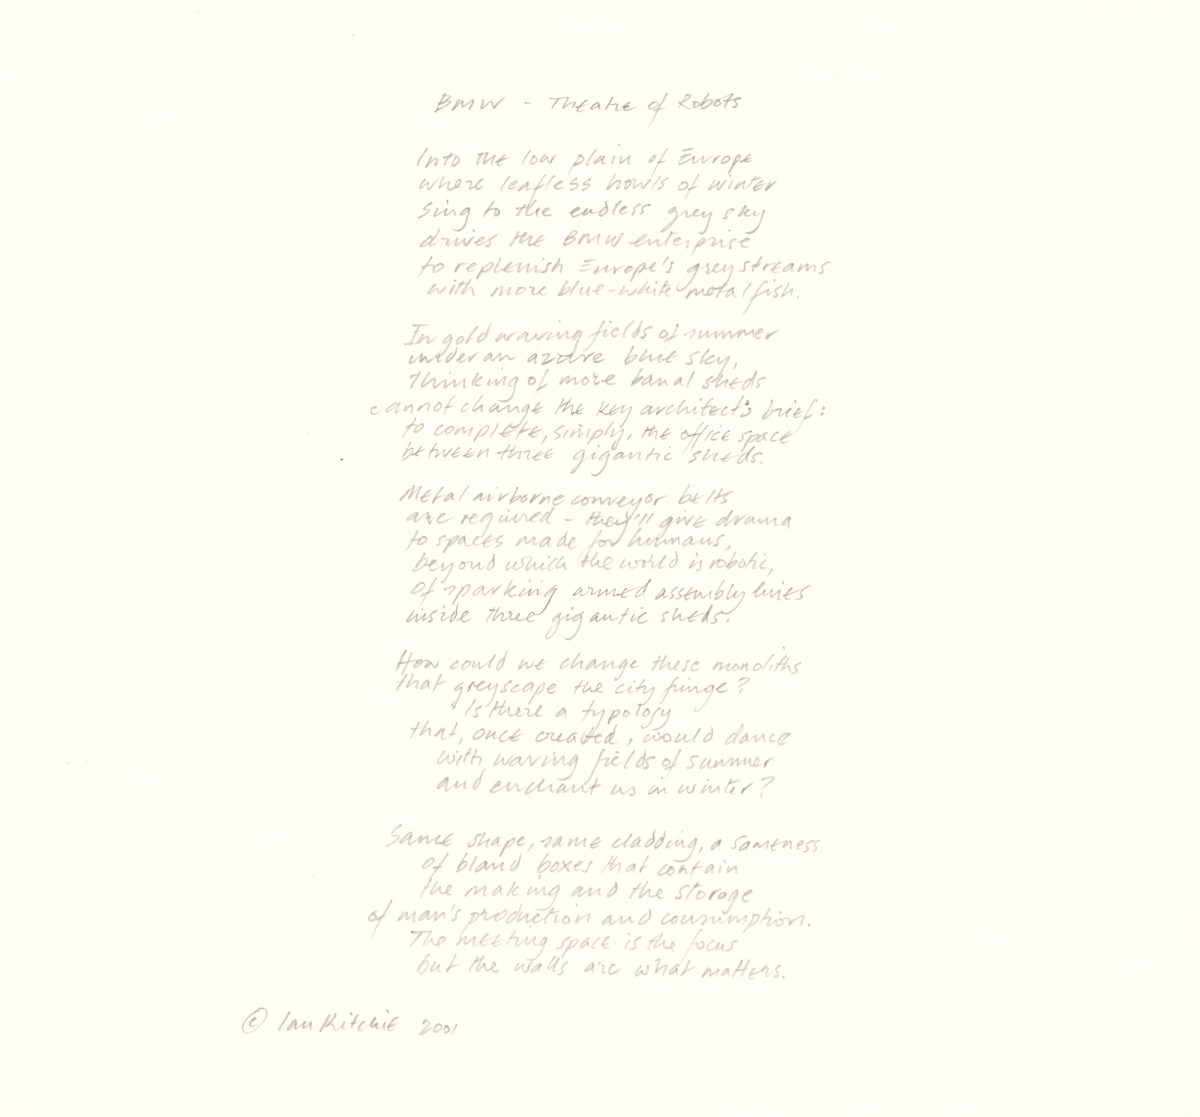 BMW - Theatre of Robots
Into the low plain of Europe
where leafless howls of winter
sing to the endless grey sky
drives the BMW enterprise
to replenish Europe's grey streams
with more blue-white metal fish.
In gold waving fields of summer
under an azure blue sky,
thinking of more banal sheds
cannot change the key architect's brief:
to complete, simply, the office space
between three gigantic sheds.
Metal airborne conveyor belts
are required - they'll give drama
to spaces made for humans,
beyond which the world is robotic,
of sparking armed assembly lines
inside three gigantic sheds.
How could we change these monoliths
that greyscape the city fringe?
Is there a typology
that, once created, would dance
with waving fields of summer
and enchant us in winter?
Same shape, same cladding, a sameness
of bland boxes that contain
the making and the storage
of man's production and consumption.
The meeting space is the focus
but the walls are what matters.
© Ian Ritchie 2001